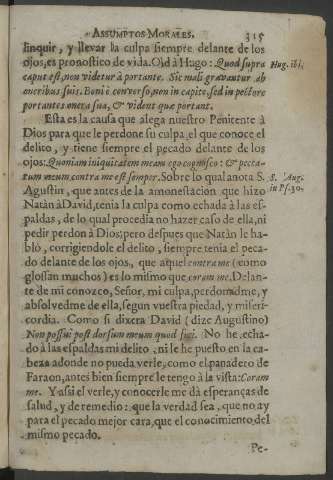 ASSUMPTOS MORALES. 315
linquir, y llevar la culpa siempre delante de los
ojos, es pronostico de vida. Oìd à Hugo: Quod supra Hug. ibi.
caput est, non videtur à portante. Sic mali gravantur ab
oneribus suis. Boni è converso, non in capite, sed in pectore
portantes onera sua, & vident quæ portant.
Esta es la causa que alega nuestro Penitente à
Dios para que le perdone su culpa, el que conoce el
delito, y tiene siempre el pecado delante de los
ojos: Quoniam iniquitatem meam ego cognosco: & pecca-
tum meum contra me est semper. Sobre lo qual nota S. S. Aug.
Agustin, que antes de la amonestacion que hizo in Ps. 50.
Natàn à David, tenia la culpa como echada à las es-
paldas, de lo qual procedia no hazer caso de ella, ni
pedir perdon à Dios; pero despues que Natàn le ha-
blo, corrigiendole el delito, siempre tenia el peca-
do delante de los ojos, que aquel contra me (como
glossan muchos) es lo mismo que coram me. Delan-
te de mi conozco, Señor, mi culpa, perdonadme, y
absolvedme de ella, segun vuestra piedad, y miseri-
cordia. Como si dixera David (dize Augustino)
Non possui post dorsum meum quod feci. No he echa-
do à las espaldas mi delito, ni le he puesto en la ca-
beza adonde no pueda verle, como el panadero de
Faraon, antes bien siempre le tengo à la vista: Coram
me. Y assi el verle, y conocerle me dà esperanças de
salud, y de remedio: que la verdad sea, que no ay
para el pecado mejor cara, que el conocimiento del
mismo pecado.
Pe-